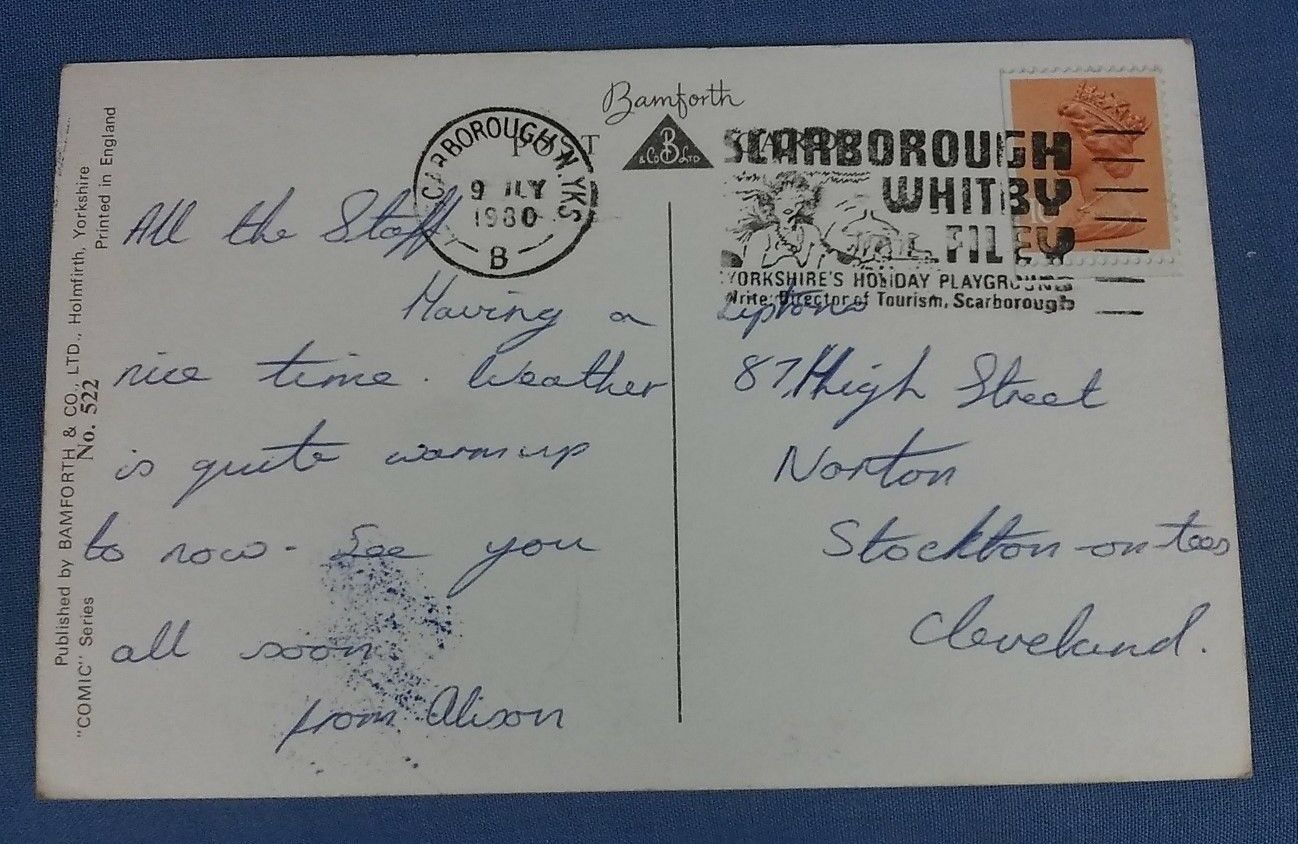 Published by BAMFORTH & CO., LTD., Holmfirth, Yorkshire
"COMIC" Series No. 522 Printed in England
Bamforth
POST CARD
B
& Co LTD
SCARBOROUGH N. YKS
9 JLY
1980
B
SCARBOROUGH
WHITBY
FILEY
YORKSHIRE'S HOLIDAY PLAYGROUND
Write: Director of Tourism, Scarborough
All the Staff
Having a
nice time. Weather
is quite warm up
to now. See you
all soon.
from Alison
Liptons
87, High Street
Norton
Stockton-on-tees
Cleveland.